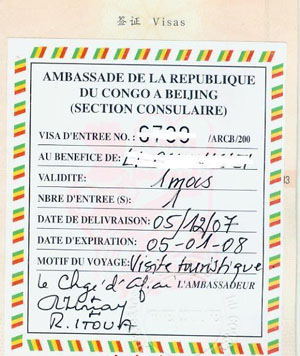 签证 Visas
AMBASSADE DE LA REPUBLIQUE
DU CONGO A BEIJING
(SECTION CONSULAIRE)
VISA D'ENTREE NO. : /ARCB/200
AU BENEFICE DE:
VALIDITE: 1 mois
NBRE D'ENTREE (S): 1
DATE DE DELIVRAISON: 05/12/07
DATE D'EXPIRATION: 05-01-08
MOTIF DU VOYAGE: Visite touristique
Le Chgé d'Af.ai L'AMBASSADEUR
R. ITOUA